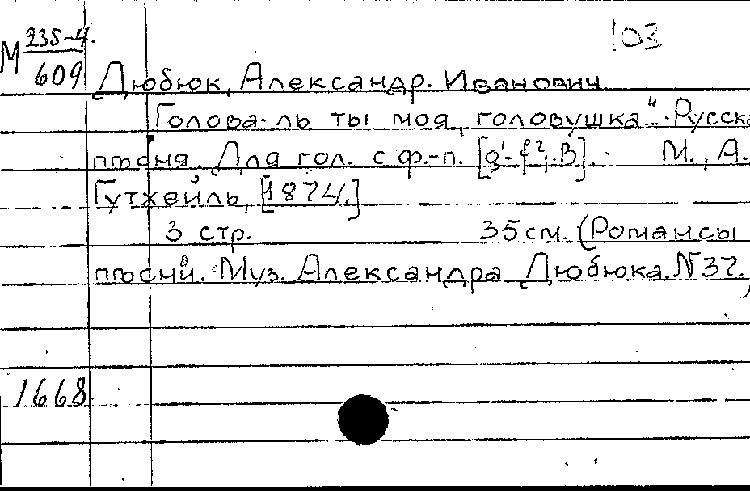 М 235-4
609
103
Дюбюк, Александр Иванович
"Голова-ль ты моя, головушка". Русск
пѣсня. Для гол. с ф.-п. [g'-f², B]. М., А.
Гутхейль, [1874.]
3 стр. 35 см. (Романсы
пѣсни. Муз. Александра Дюбюка. №37.)
1668